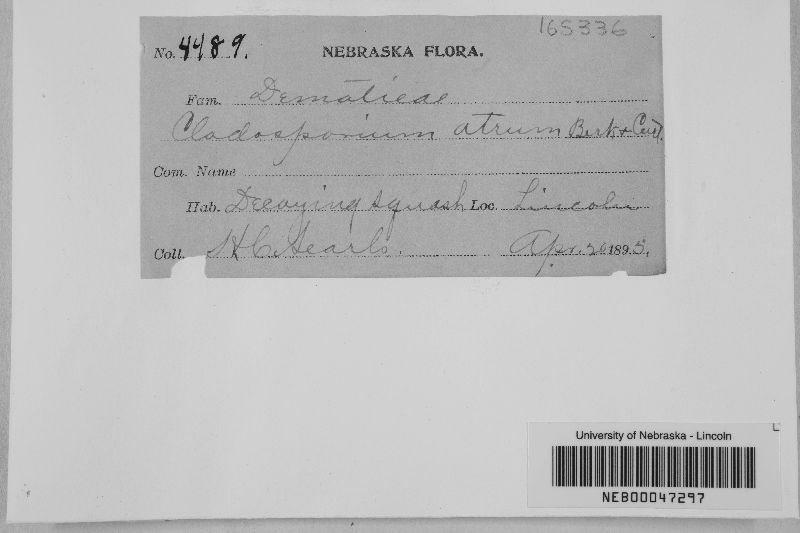 165336
No. 4489. NEBRASKA FLORA.
Fam. Dematieae
Cladosporium atrum Berk + Curt.
Com. Name
Hab. Decaying squash Loc. Lincoln
Coll. H C Searls. Apr. 20 1895.
University of Nebraska - Lincoln
NEB00047297